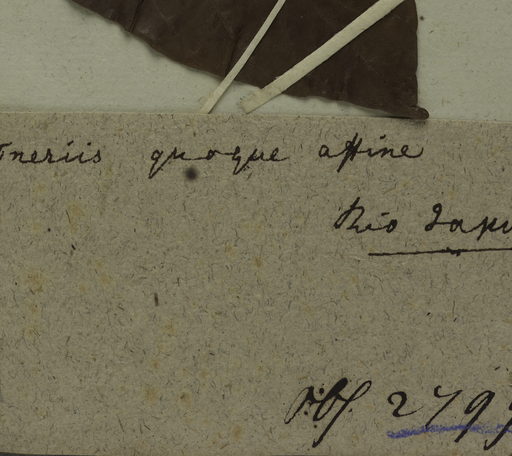 neriis quoque affine
Rio Japu
Obs. 2799